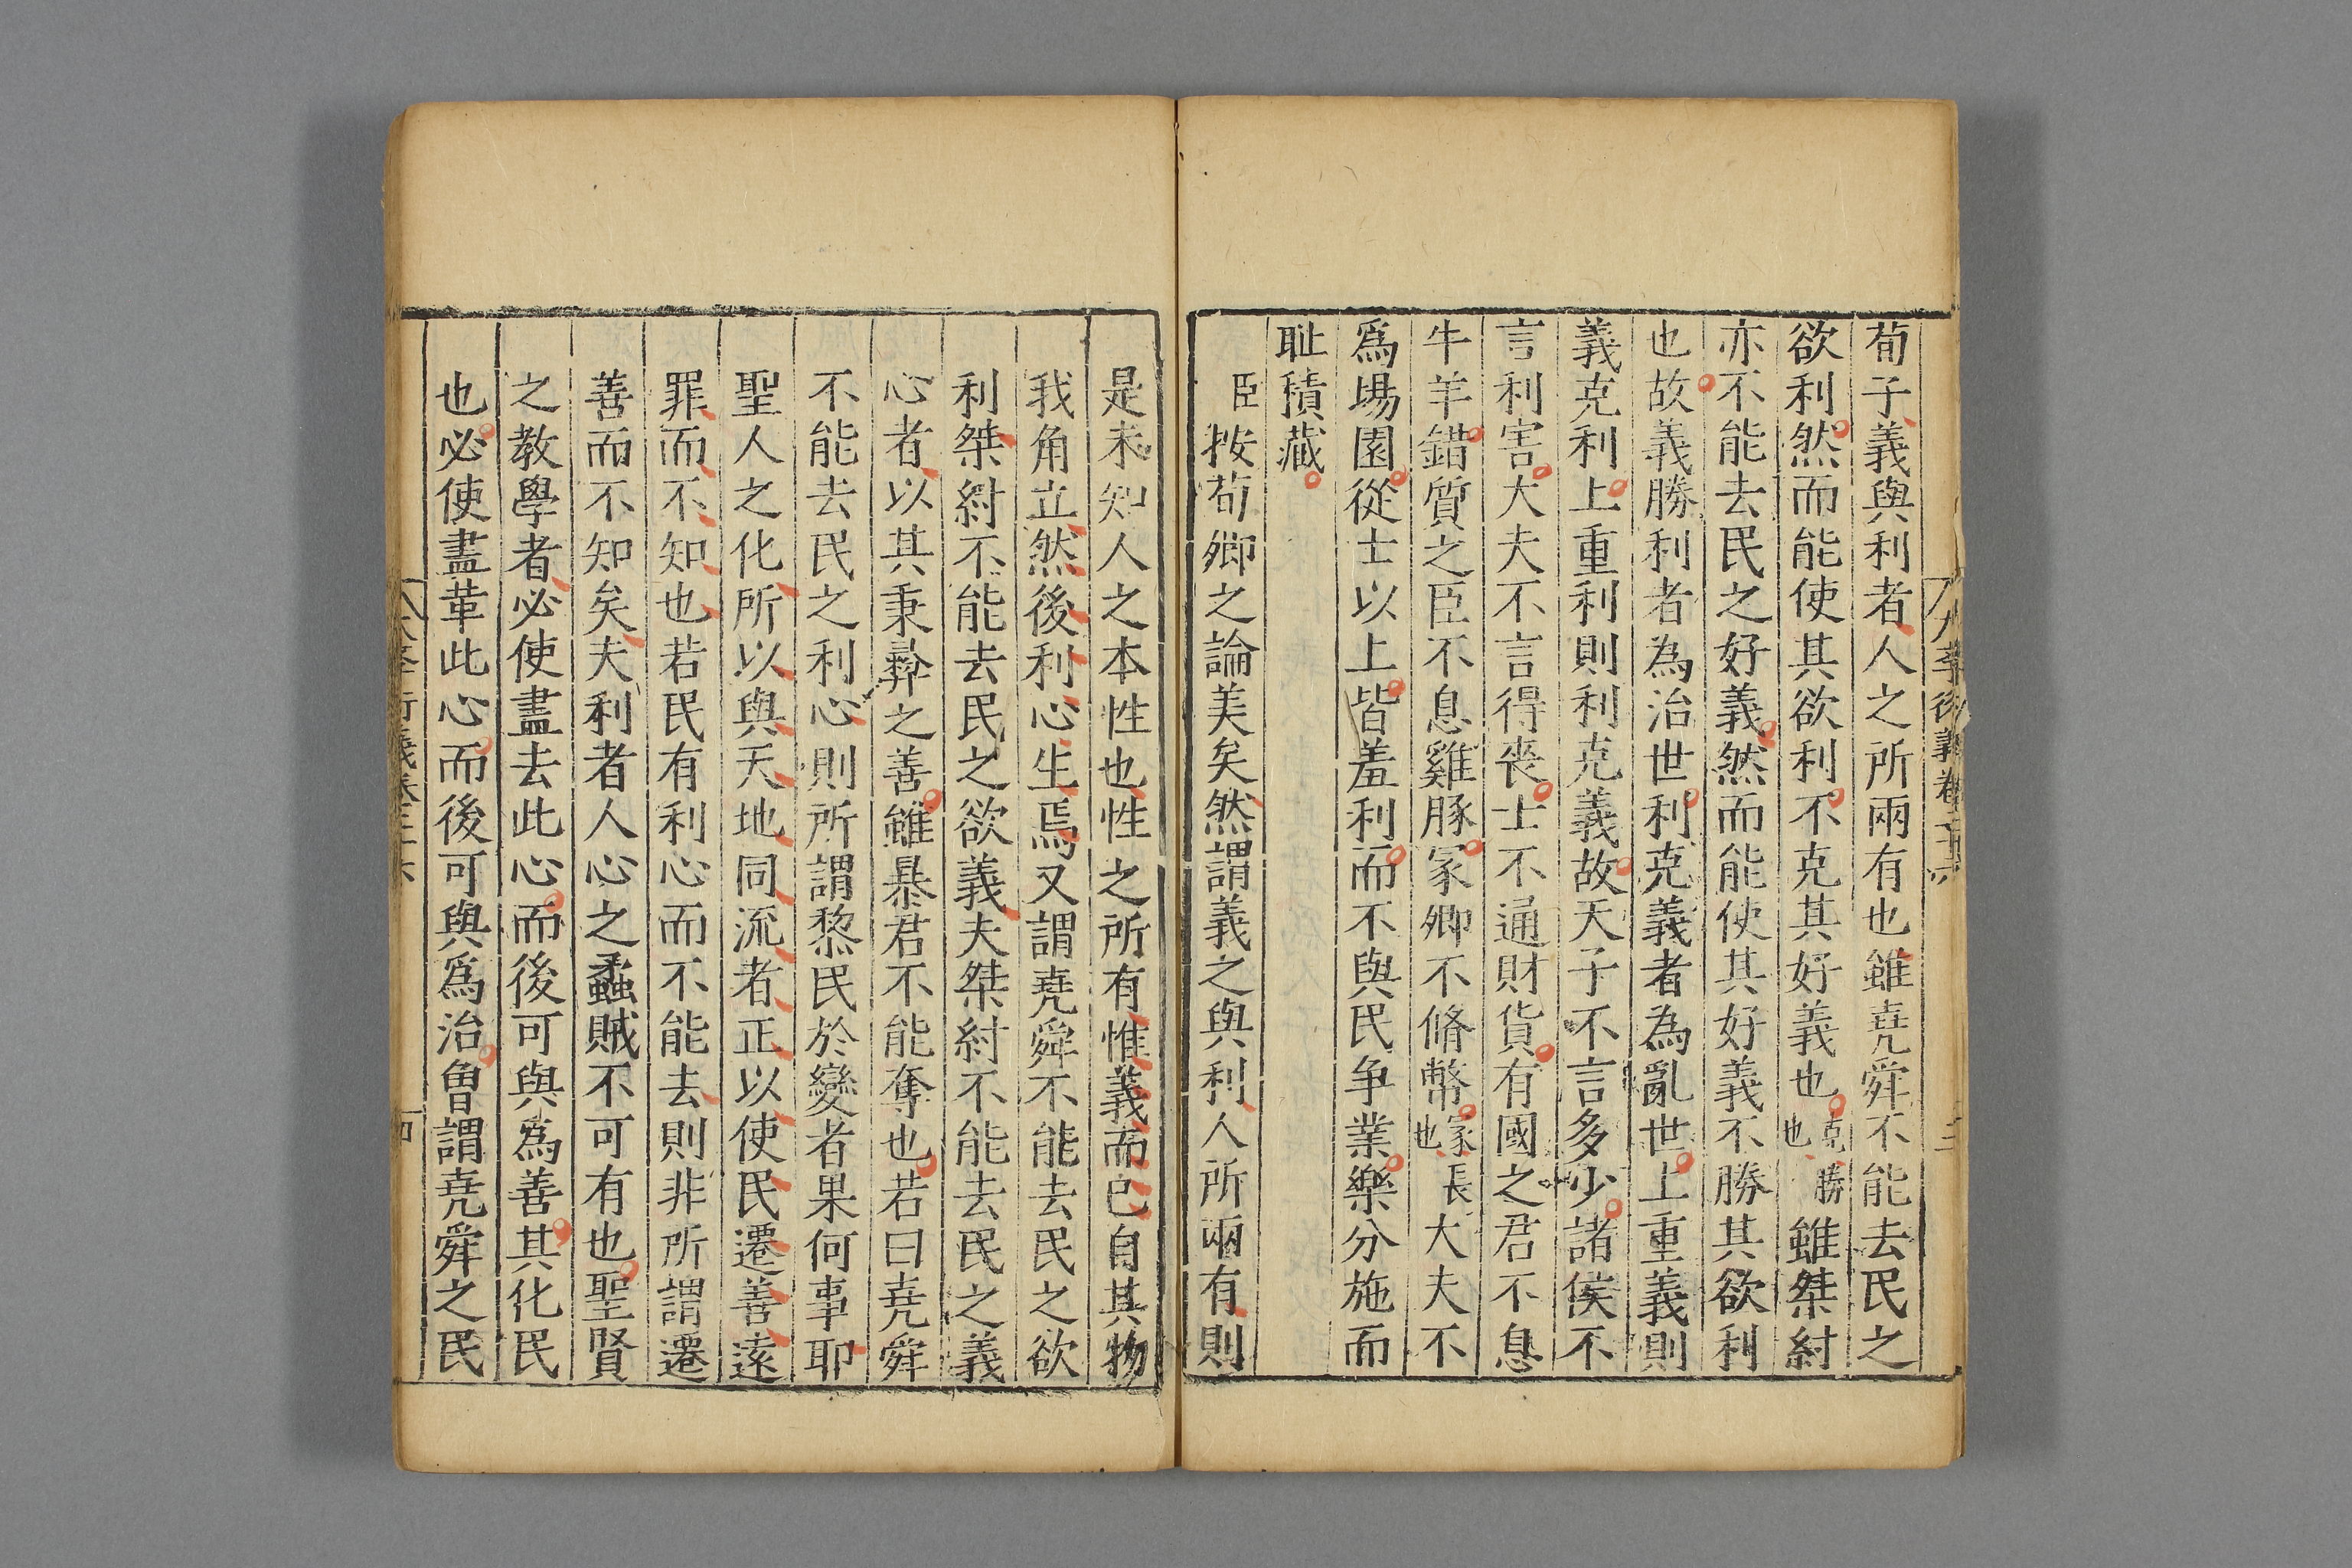 荀子義與利者人之所兩有也雖堯舜不能去民之
欲利然而能使其欲利不克其好義也克勝也雖桀紂
亦不能去民之好義然而能使其好義不勝其欲利
也故義勝利者為治世利克義者為亂世上重義則
義克利上重利則利克義故天子不言多少諸侯不
言利害大夫不言得喪士不通財貨有國之君不息
牛羊錯質之臣不息雞豚冢卿不脩幣冢長也大夫不
爲場園從士以上皆羞利而不與民争業樂分施而
耻積藏
臣按荀卿之論美矣然謂義之與利人所兩有則
是未知人之本性也性之所有惟義而已自其物
我角立然後利心生焉又謂堯舜不能去民之欲
利桀紂不能去民之欲義夫桀紂不能去民之義
心者以其秉彝之善雖暴君不能奪也若曰堯舜
不能去民之利心則所謂黎民於變者果何事耶
聖人之化所以與天地同流者正以使民遷善遠
罪而不知也若民有利心而不能去則非所謂遷
善而不知矣夫利者人心之蟊賊不可有也聖賢
之教學者必使盡去此心而後可與為善其化民
也必使盡革此心而後可與爲治曾謂堯舜之民